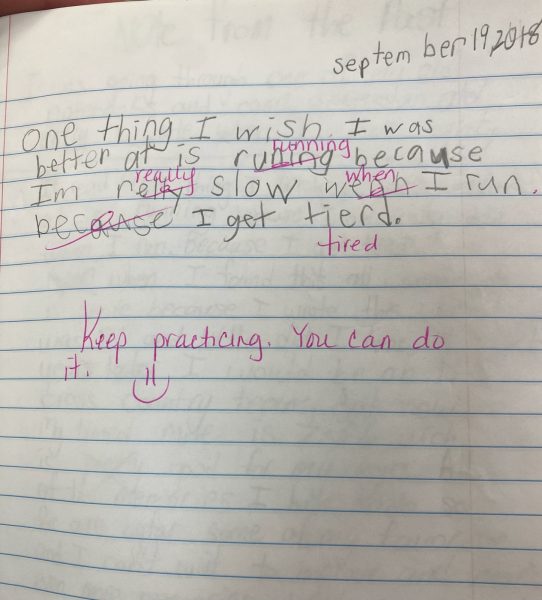 september 19, 2018
One thing I wish I was
running
better at is runing because
really when
Im relly slow wean I run.
because I get tierd.
tired
Keep practicing. You can do
it.